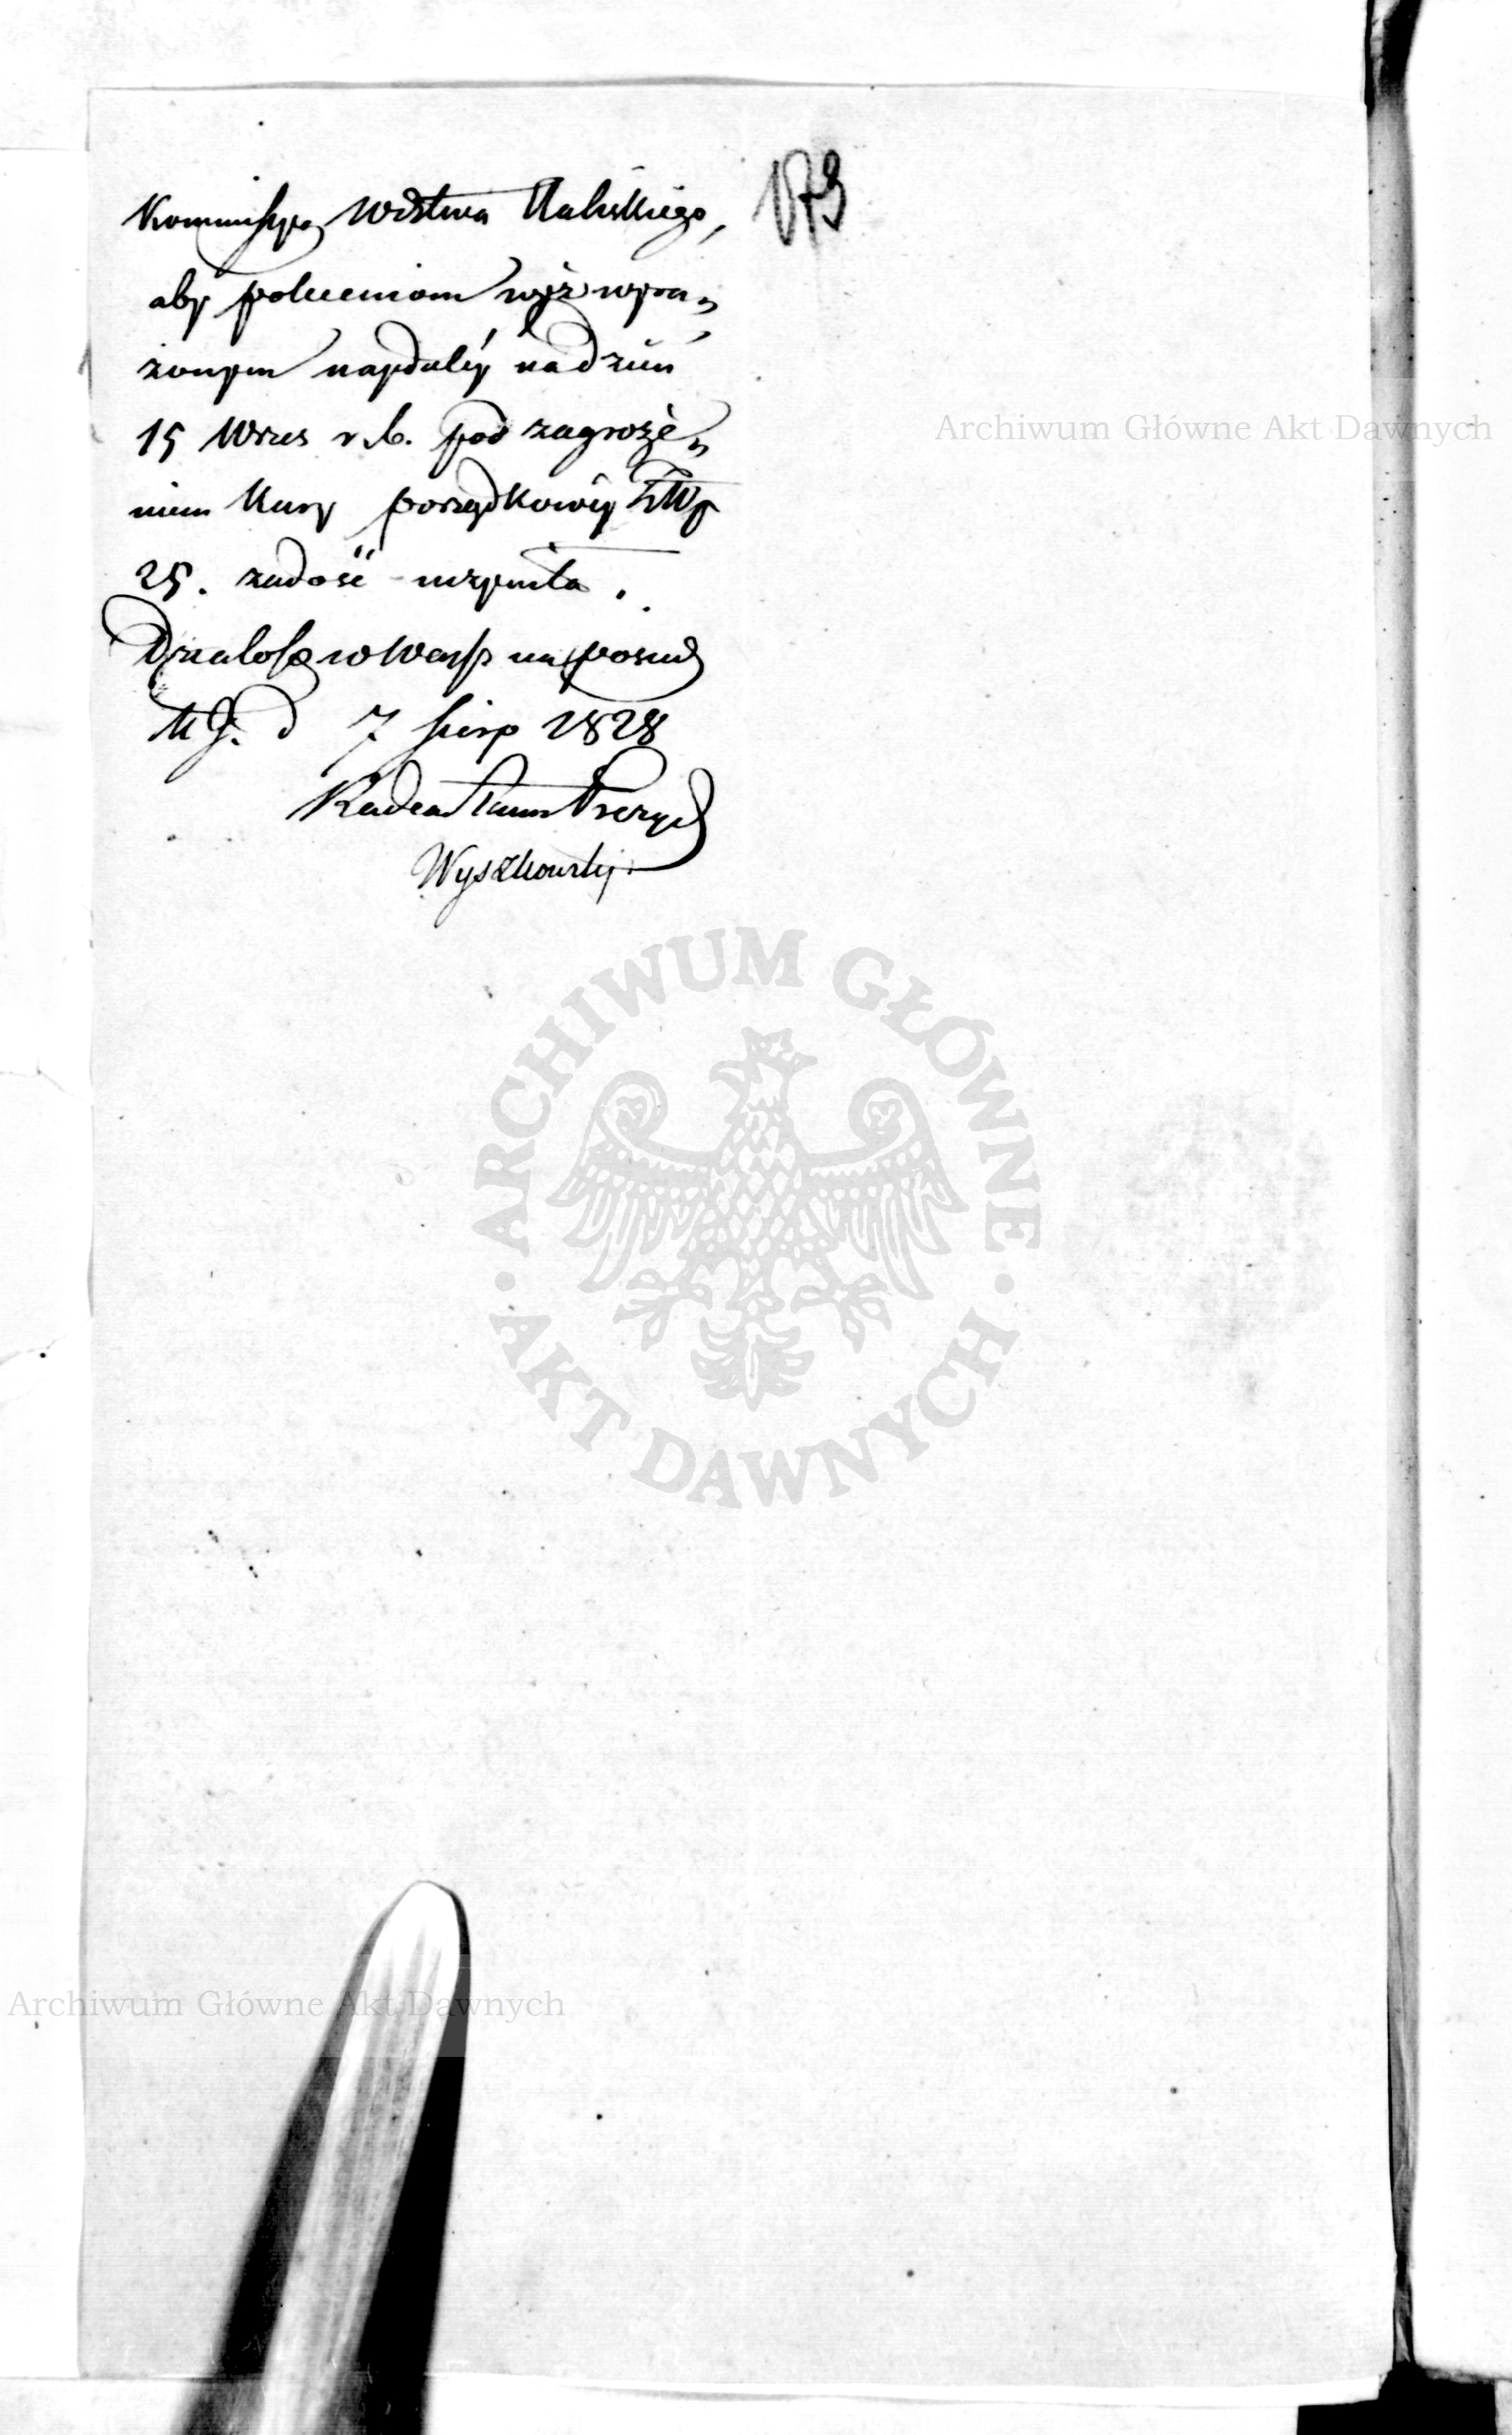 Kommissya Wdztwa Kaliskiego, 173
aby poleceniom wyż wyra„
żonym naydaléy na dzień
15 Wrześ r. b. pod zagroże„
niem Kary porządkowéy ZłWp
25. zadość uczyniła.
Działo się w Warsz na posied
d 7 Sierp 1828
Radca Stanu Prezyd
Wyszkowski
Archiwum Główne Akt Dawnych
ARCHIWUM GŁÓWNE
AKT DAWNYCH
Archiwum Główne Akt Dawnych